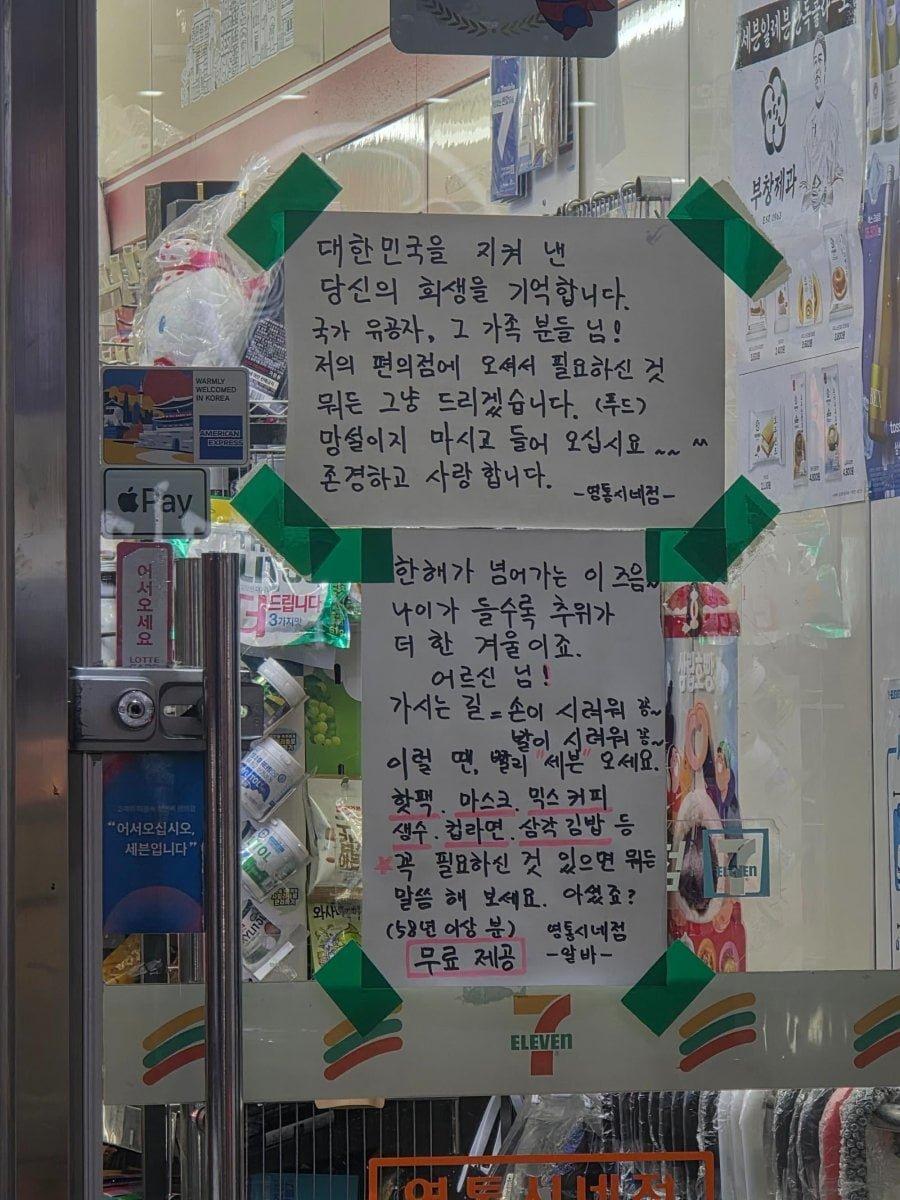 세븐일레븐 단독출시
부창제과
EST 1963
WARMLY
WELCOMED
IN KOREA
AMERICAN
EXPRESS
Pay
어서오세요
LOTTE
대한민국을 지켜 낸
당신의 희생을 기억합니다.
국가 유공자, 그 가족 분들 님!
저의 편의점에 오셔서 필요하신 것
뭐든 그냥 드리겠습니다. (푸드)
망설이지 마시고 들어 오십시요 ~~ ^^
존경하고 사랑합니다.
-영통시네점-
드립니다
3가지맛
한해가 넘어가는 이 즈음~
나이가 들수록 추위가
더 한 겨울이죠.
어르신 님!
가시는 길 = 손이 시려워 꽁~
발이 시려워 꽁~
이럴 땐, 빨리 "세븐" 오세요.
핫팩. 마스크. 믹스커피
생수. 컵라면. 삼각김밥 등
꼭 필요하신 것 있으면 뭐든
말씀 해 보세요. 아셨죠?
(58년 이상 분) 영통시네점
무료 제공 -알바-
"어서오십시오,
세븐입니다"
7
ELEVEN
7
ELEVEN
영통시네점